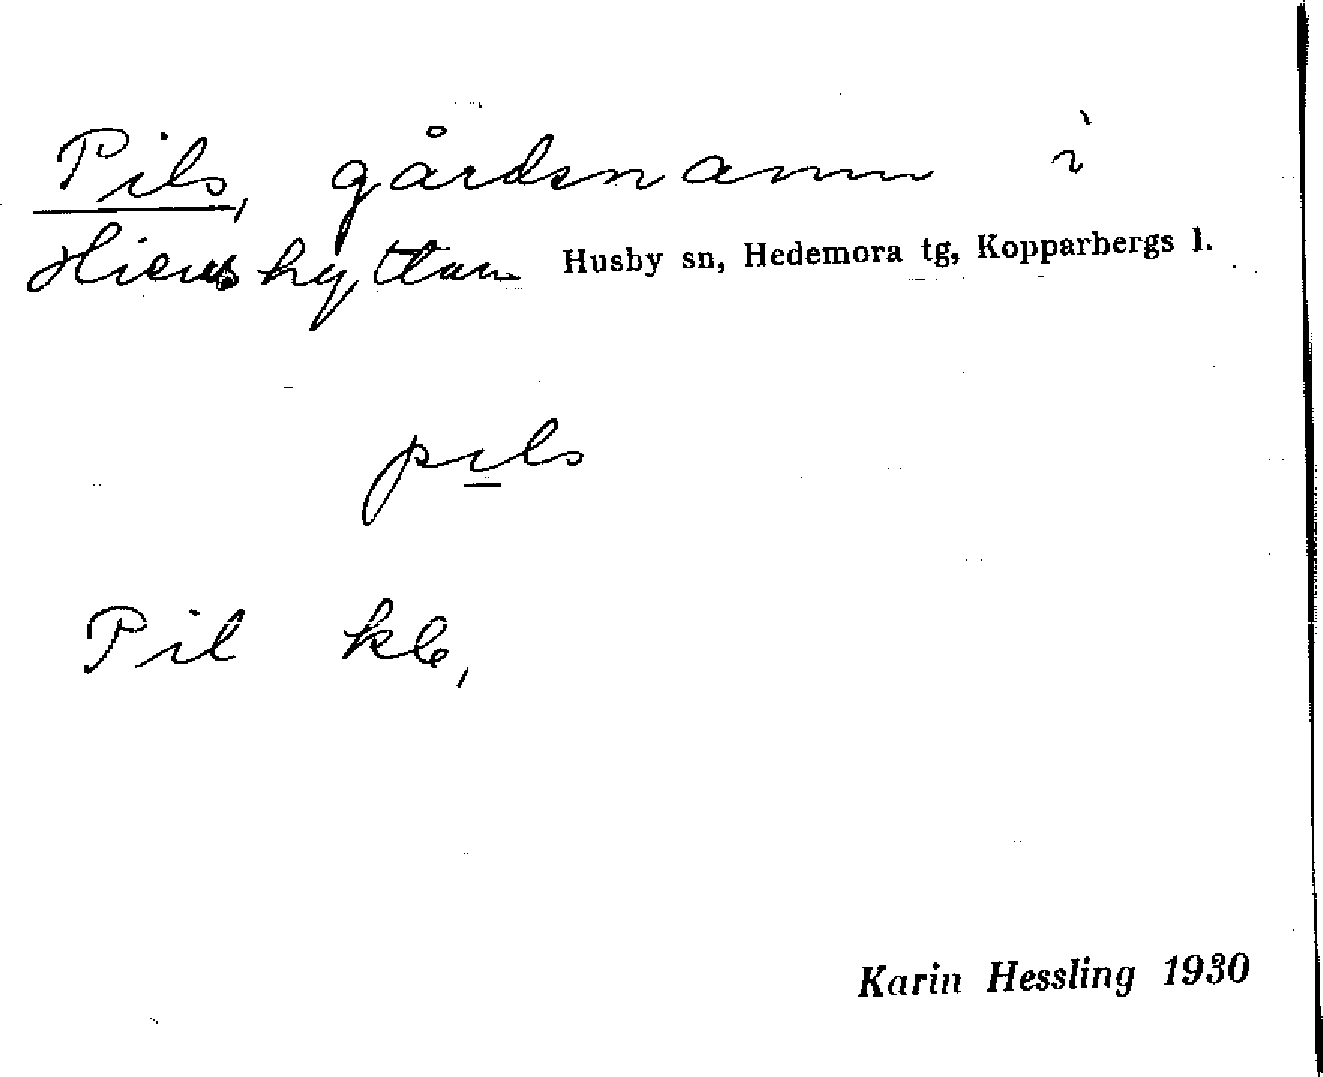 Pils, gårdsnamn i
Hienshyttan Husby sn, Hedemora tg, Kopparbergs l.
pıls
Pil kle,
Karin Hessling 1930